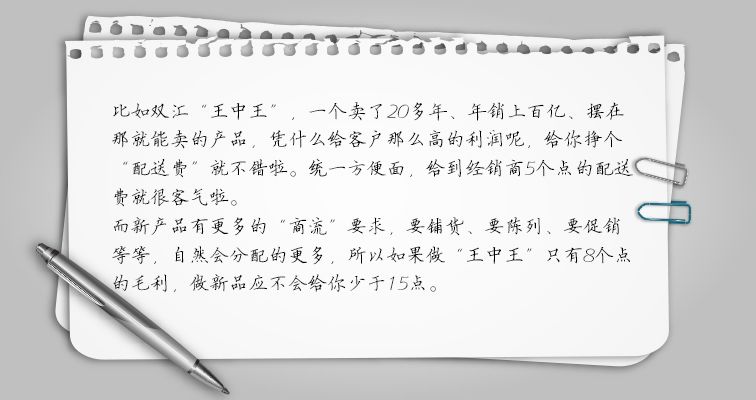 比如双汇“王中王”，一个卖了20多年、年销上百亿、摆在
那就能卖的产品，凭什么给客户那么高的利润呢，给你挣个
“配送费”就不错啦。统一方便面，给到经销商5个点的配送
费就很客气啦。
而新产品有更多的“商流”要求，要铺货、要陈列、要促销
等等，自然会分配的更多，所以如果做“王中王”只有8个点
的毛利，做新品应不会给你少于15点。